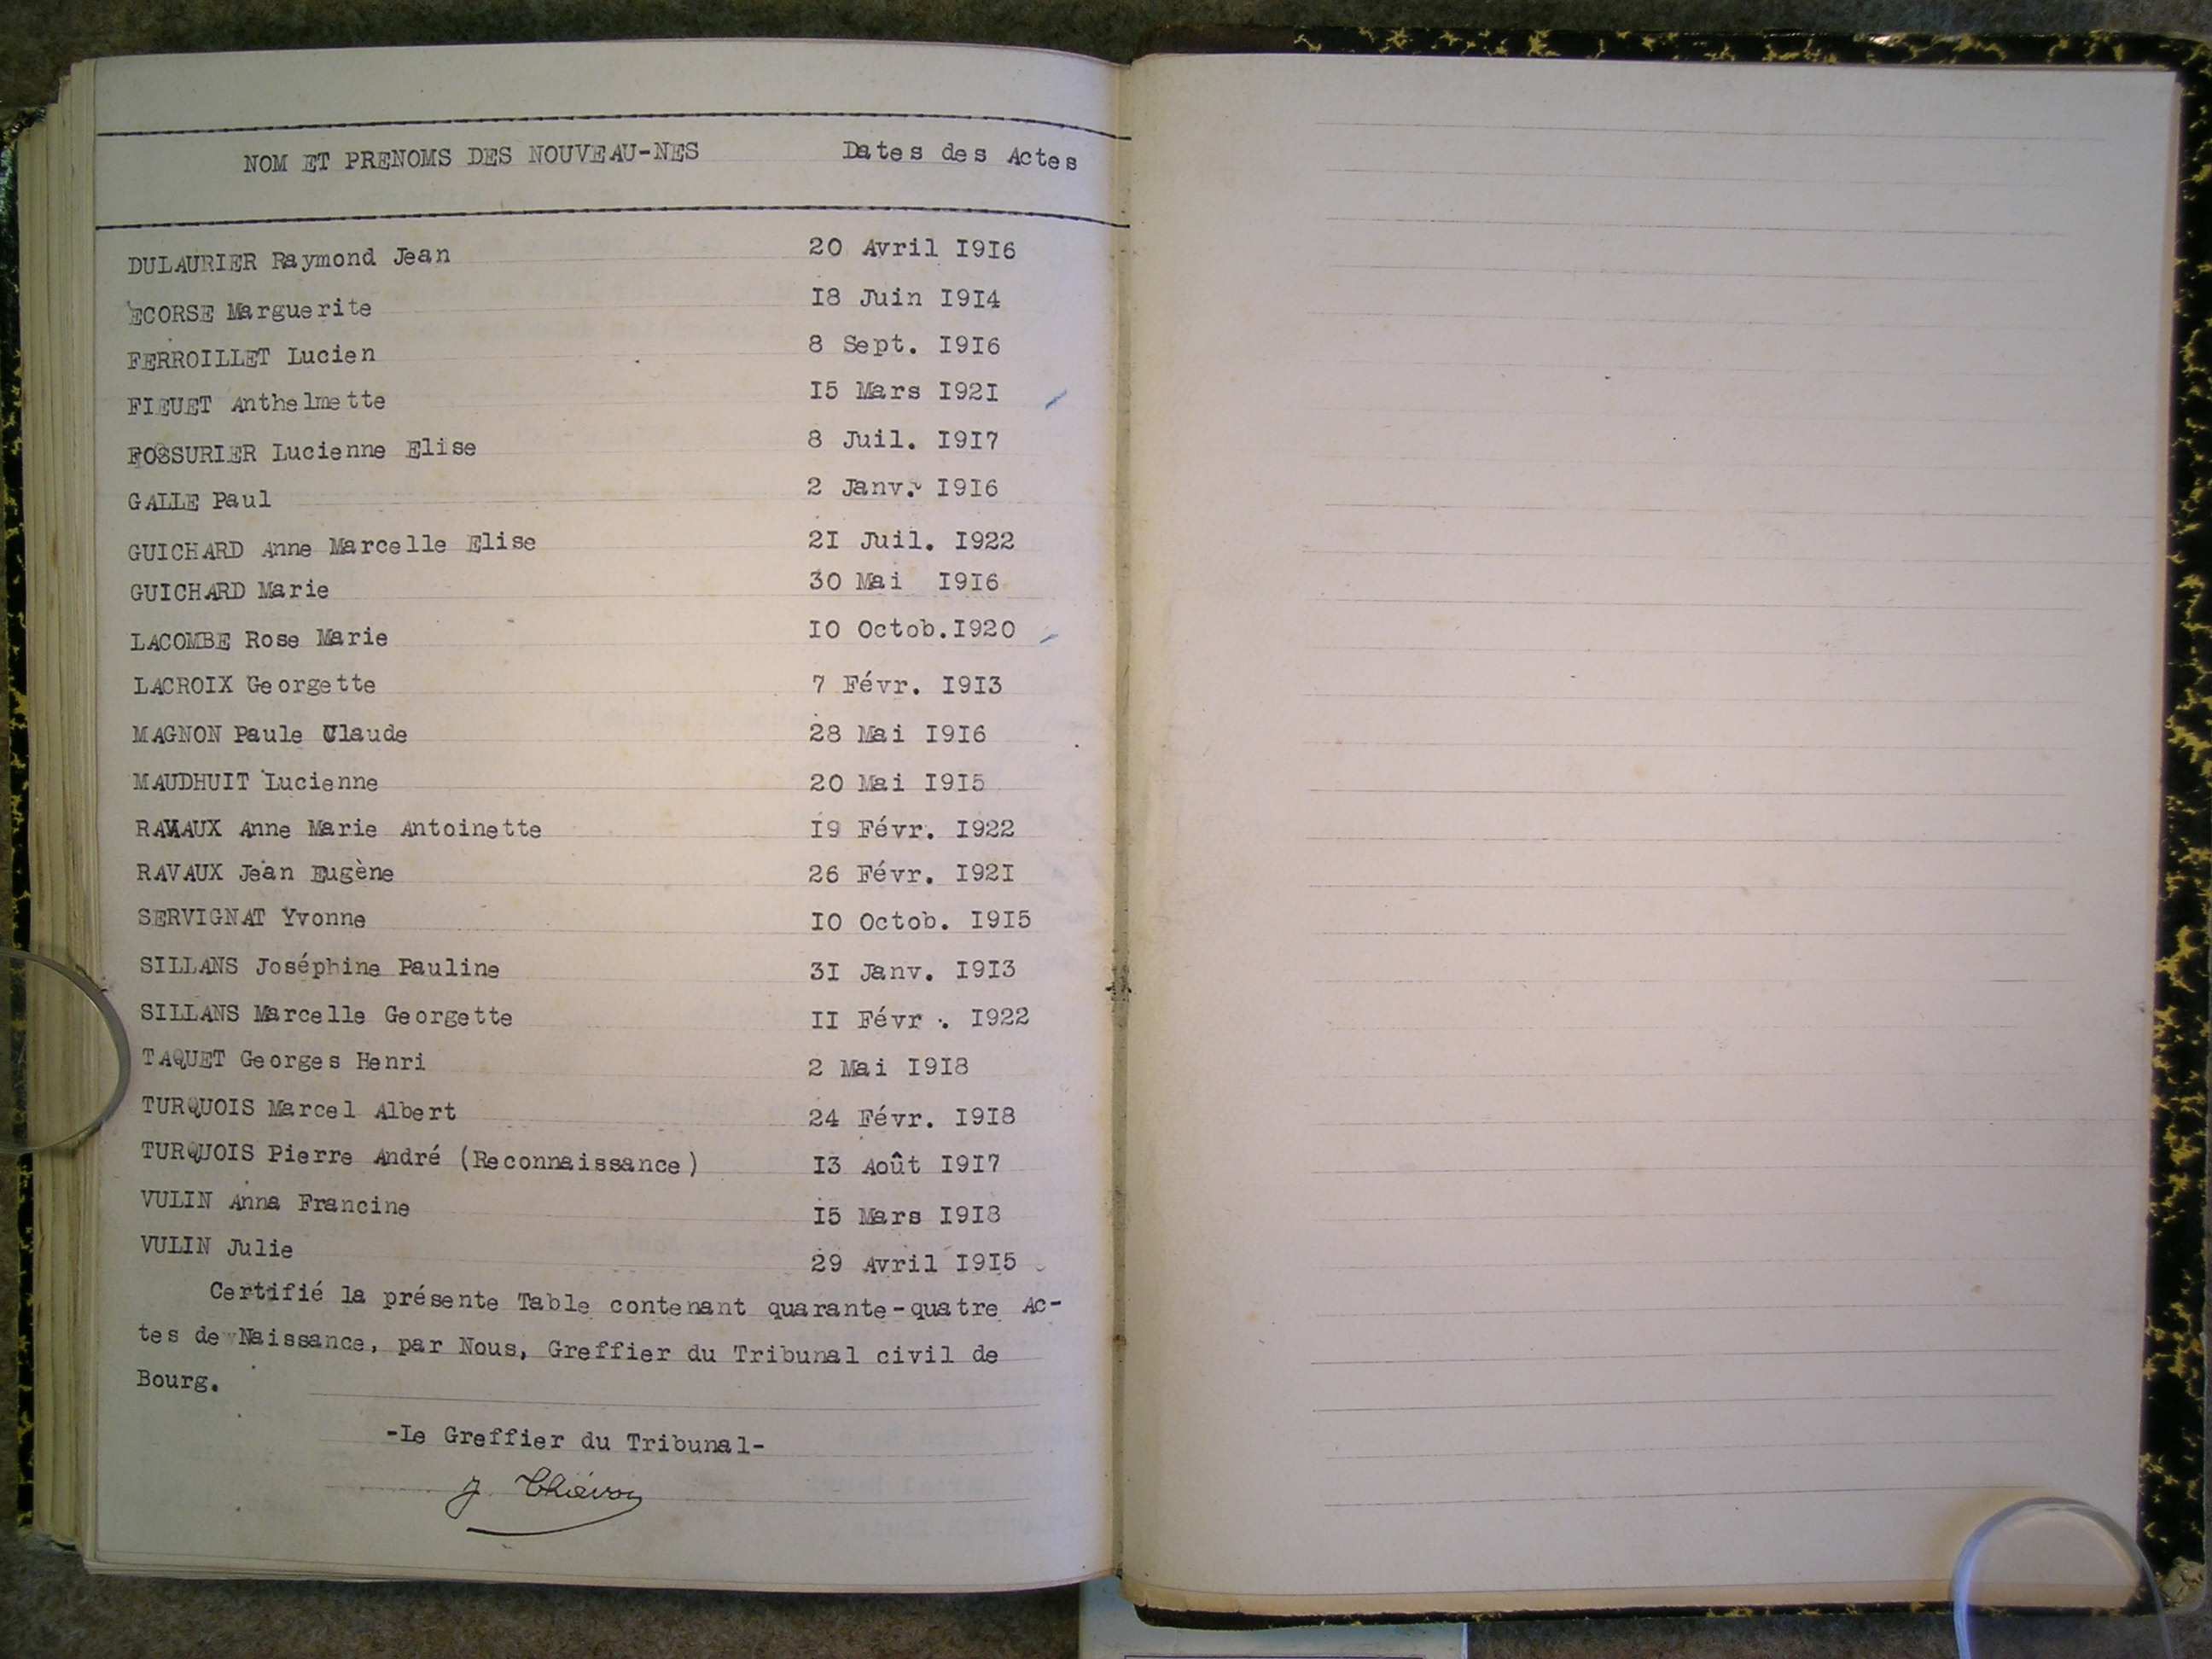 NOM ET PRENOMS DES NOUVEAU-NES Dates des Actes
DULAURIER Raymond Jean 20 Avril I9I6
ECORSE Marguerite I8 Juin I9I4
FERROILLET Lucien 8 Sept. I9I6
FIEUET Anthelmette I5 Mars I92I
FOSSURIER Lucienne Elise 8 Juil. I9I7
GALLE Paul 2 Janv. I9I6
GUICHARD Anne Marcelle Elise 2I Juil. I922
GUICHARD Marie 30 Mai I9I6
LACOMBE Rose Marie IO Octob.I920
LACROIX Georgette 7 Févr. I9I3
MAGNON Paule Claude 28 Mai I9I6
MAUDHUIT Lucienne 20 Mai I9I5
RAVAUX Anne Marie Antoinette I9 Févr. I922
RAVAUX Jean Eugène 26 Févr. I92I
SERVIGNAT Yvonne IO Octob. I9I5
SILLANS Joséphine Pauline 3I Janv. I9I3
SILLANS Marcelle Georgette II Févr . I922
TAQUET Georges Henri 2 Mai I9I8
TURQUOIS Marcel Albert 24 Févr. I9I8
TURQUOIS Pierre André (Reconnaissance) I3 Août I9I7
VULIN Anna Francine I5 Mars I9I8
VULIN Julie 29 Avril I9I5
Certifié la présente Table contenant quarante-quatre Ac-
tes de Naissance, par Nous, Greffier du Tribunal civil de
Bourg.
-Le Greffier du Tribunal-
J.